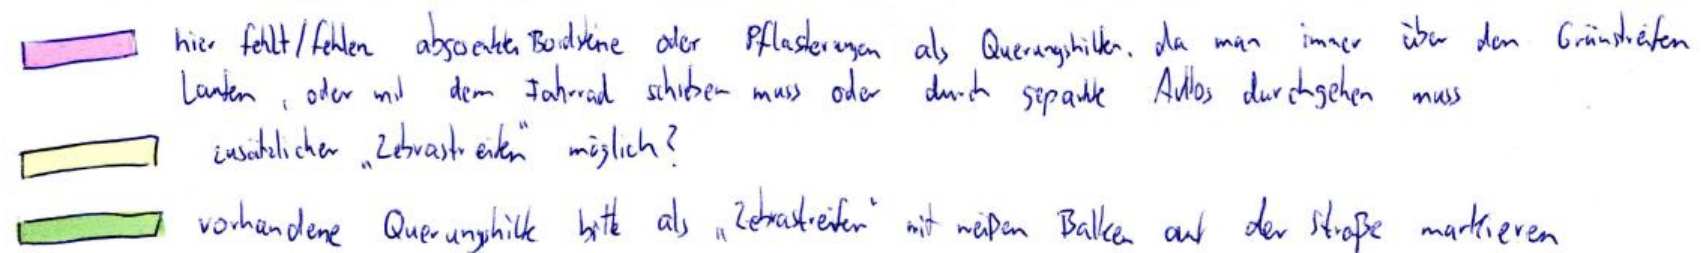 hier fehlt/fehlen abgesenkte Bordsteine oder Pflasterungen als Querungshilfen, da man immer über den Grünstreifen
laufen, oder mit dem Fahrrad schieben muss oder durch geparkte Autos durchgehen muss
zusätzlicher „Zebrastreifen“ möglich?
vorhandene Querungshilfe bitte als „Zebrastreifen“ mit weißen Balken auf der Straße markieren